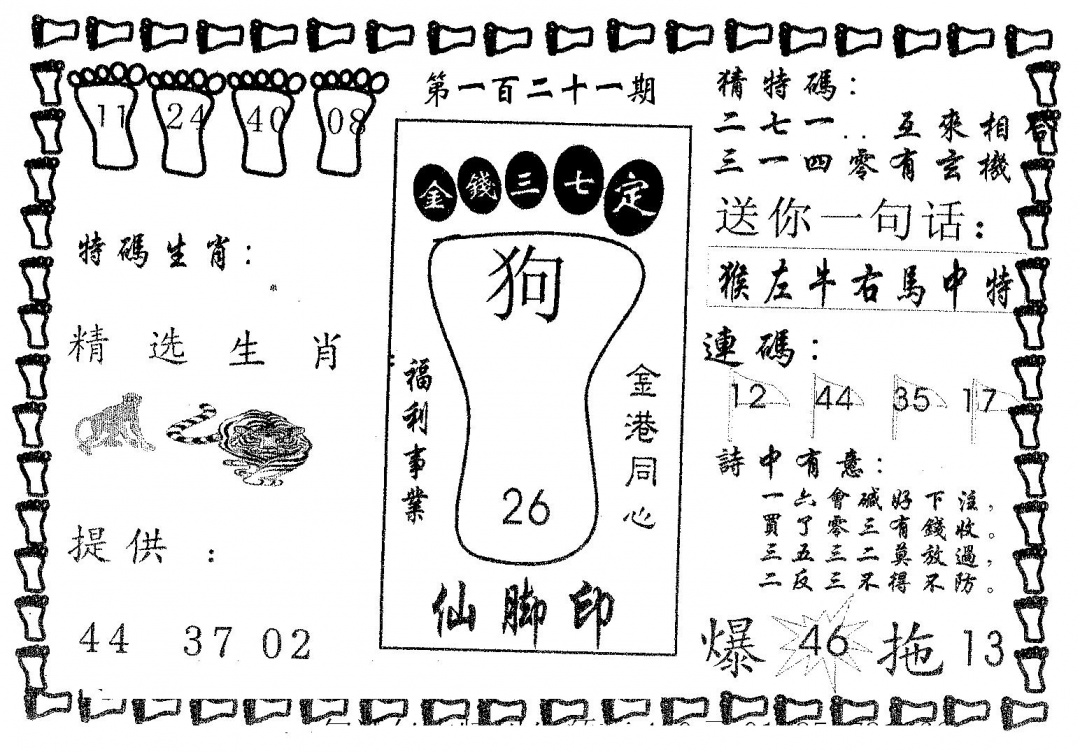 第一百二十一期
11 24 40 08
特碼生肖:
精选生肖:
提供:
44 37 02
金錢三七定
狗
福利事業
金港同心
26
仙脚印
猜特碼:
二七一..互來相合
三一四零有玄機
送你一句话:
猴左牛右馬中特
連碼:
12 44 35 17
詩中有意:
一六會碱好下注,
買了零三有錢收。
三五三二莫放過,
二反三不得不防。
爆 46 拖 13